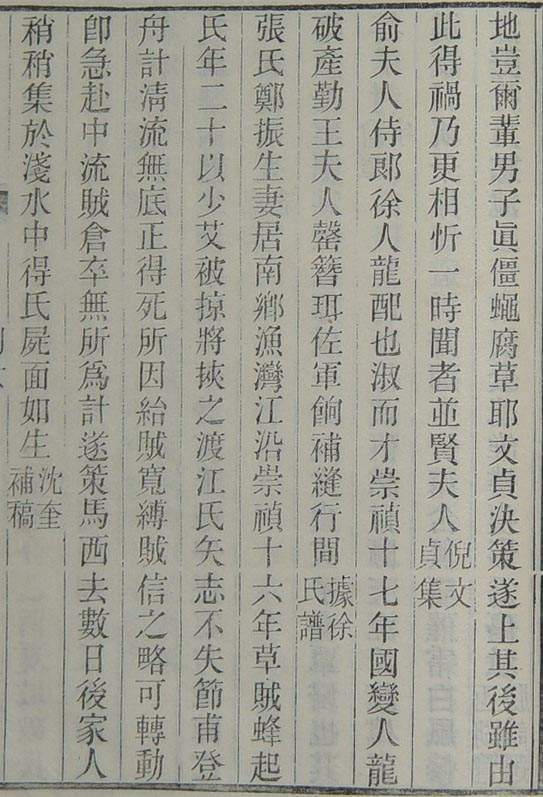 地豈爾輩男子眞僵蠅腐草耶文貞決策遂上其後雖由
此得禍乃更相忻一時聞者並賢夫人倪文貞集
俞夫人侍郎徐人龍配也淑而才崇禎十七年國變人龍
破產勤王夫人罄簪珥佐軍餉補縫行間據徐氏譜
張氏鄭振生妻居南鄉漁灣江沿崇禎十六年草賊蜂起
氏年二十以少艾被掠將挾之渡江氏矢志不失節甫登
舟計清流無底正得死所因紿賊寬縛賊信之略可轉動
卽急赴中流賊倉卒無所爲計遂策馬西去數日後家人
稍稍集於淺水中得氏屍面如生沈奎補稿